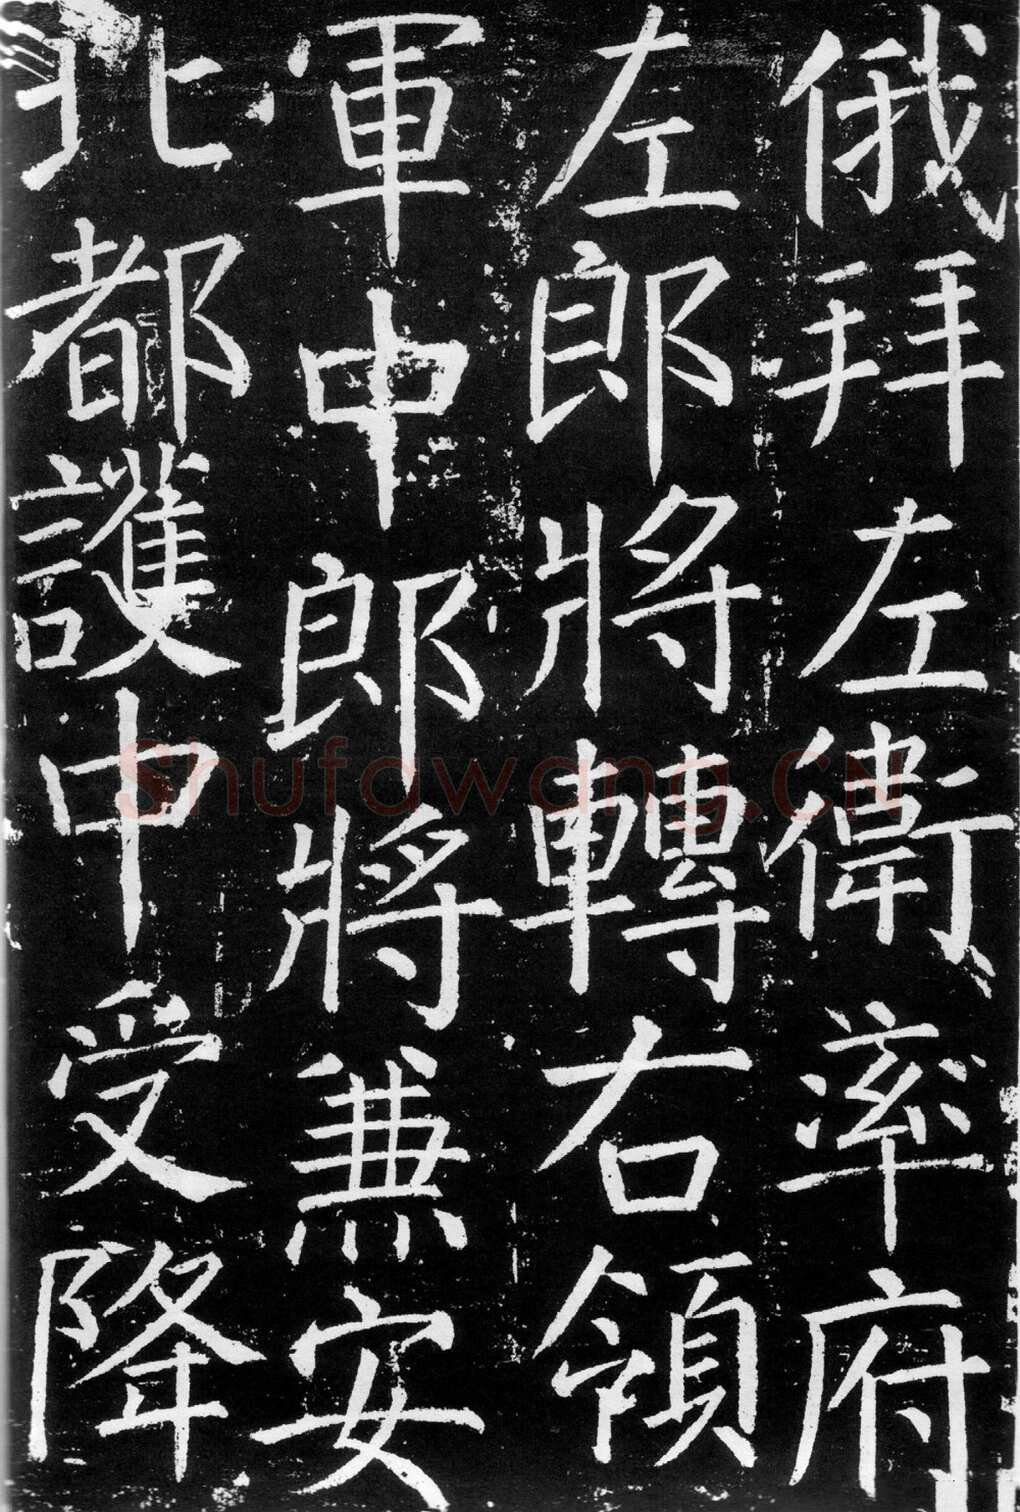 俄拜左衛率府
左郎將轉右領
軍中郎將兼安
北都護中受降
Shufawang.CN